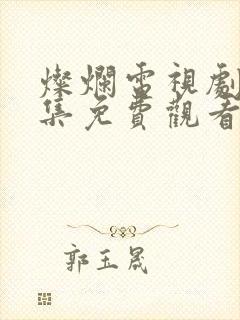 燦爛電視劇
集免費觀看
郭玉晟